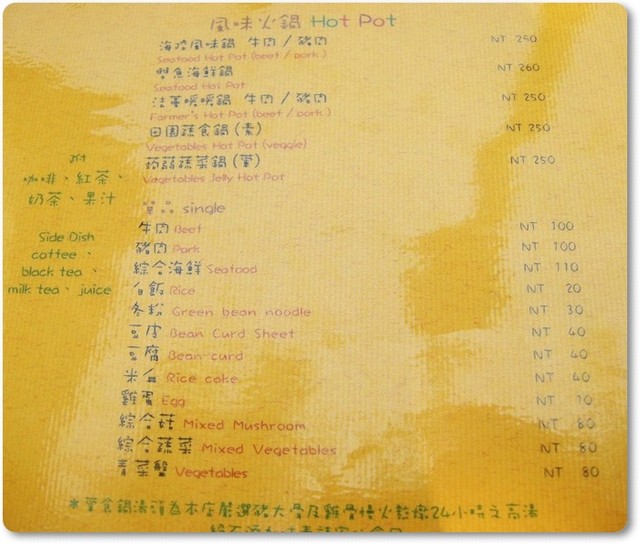 風味火鍋 Hot Pot
海陸風味鍋 牛肉/豬肉 NT 250
Seafood Hot Pot (beef / pork)
鱈魚海鮮鍋 NT 260
Seafood Hot Pot
法蒡暖暖鍋 牛肉/豬肉 NT 250
Farmer's Hot Pot (beef / pork)
田園蔬食鍋(素) NT 250
Vegetables Hot Pot (veggie)
蒟蒻蔬菜鍋(葷) NT 250
Vegetables Jelly Hot Pot
附
咖啡、紅茶、
奶茶、果汁
Side Dish
coffee、
black tea、
milk tea、juice
單品 single
牛肉 Beef NT 100
豬肉 Pork NT 100
綜合海鮮 Seafood NT 110
白飯 Rice NT 20
冬粉 Green bean noodle NT 30
豆皮 Bean Curd Sheet NT 40
豆腐 Bean-curd NT 40
米血 Rice cake NT 40
雞蛋 Egg NT 10
綜合菇 Mixed Mushroom NT 80
綜合蔬菜 Mixed Vegetables NT 80
青菜盤 Vegetables NT 80
*葷食鍋湯頭為本店嚴選豬大骨及雞骨慢火熬燉24小時之高湯